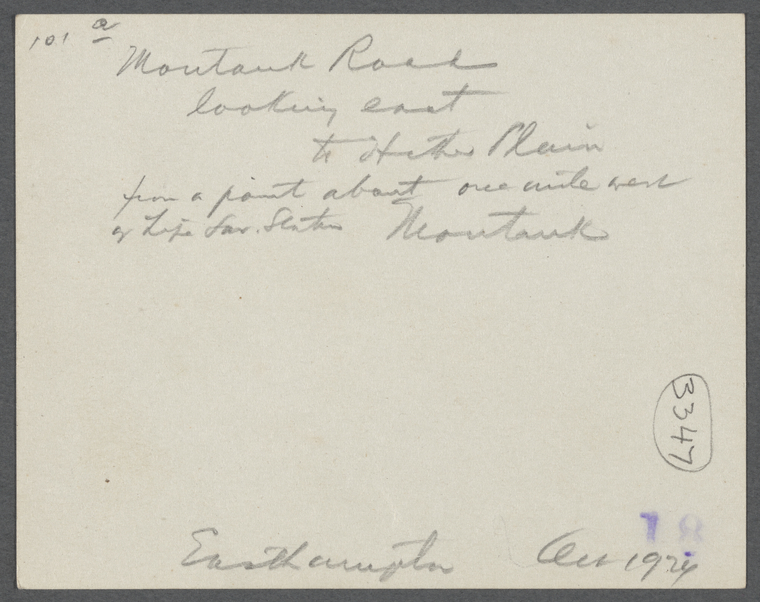 101 a
Montauk Road
looking east
to Hither Plain
from a point about one mile west
of Life Sav. Station Montauk
3347
18
Easthampton Oct 1924